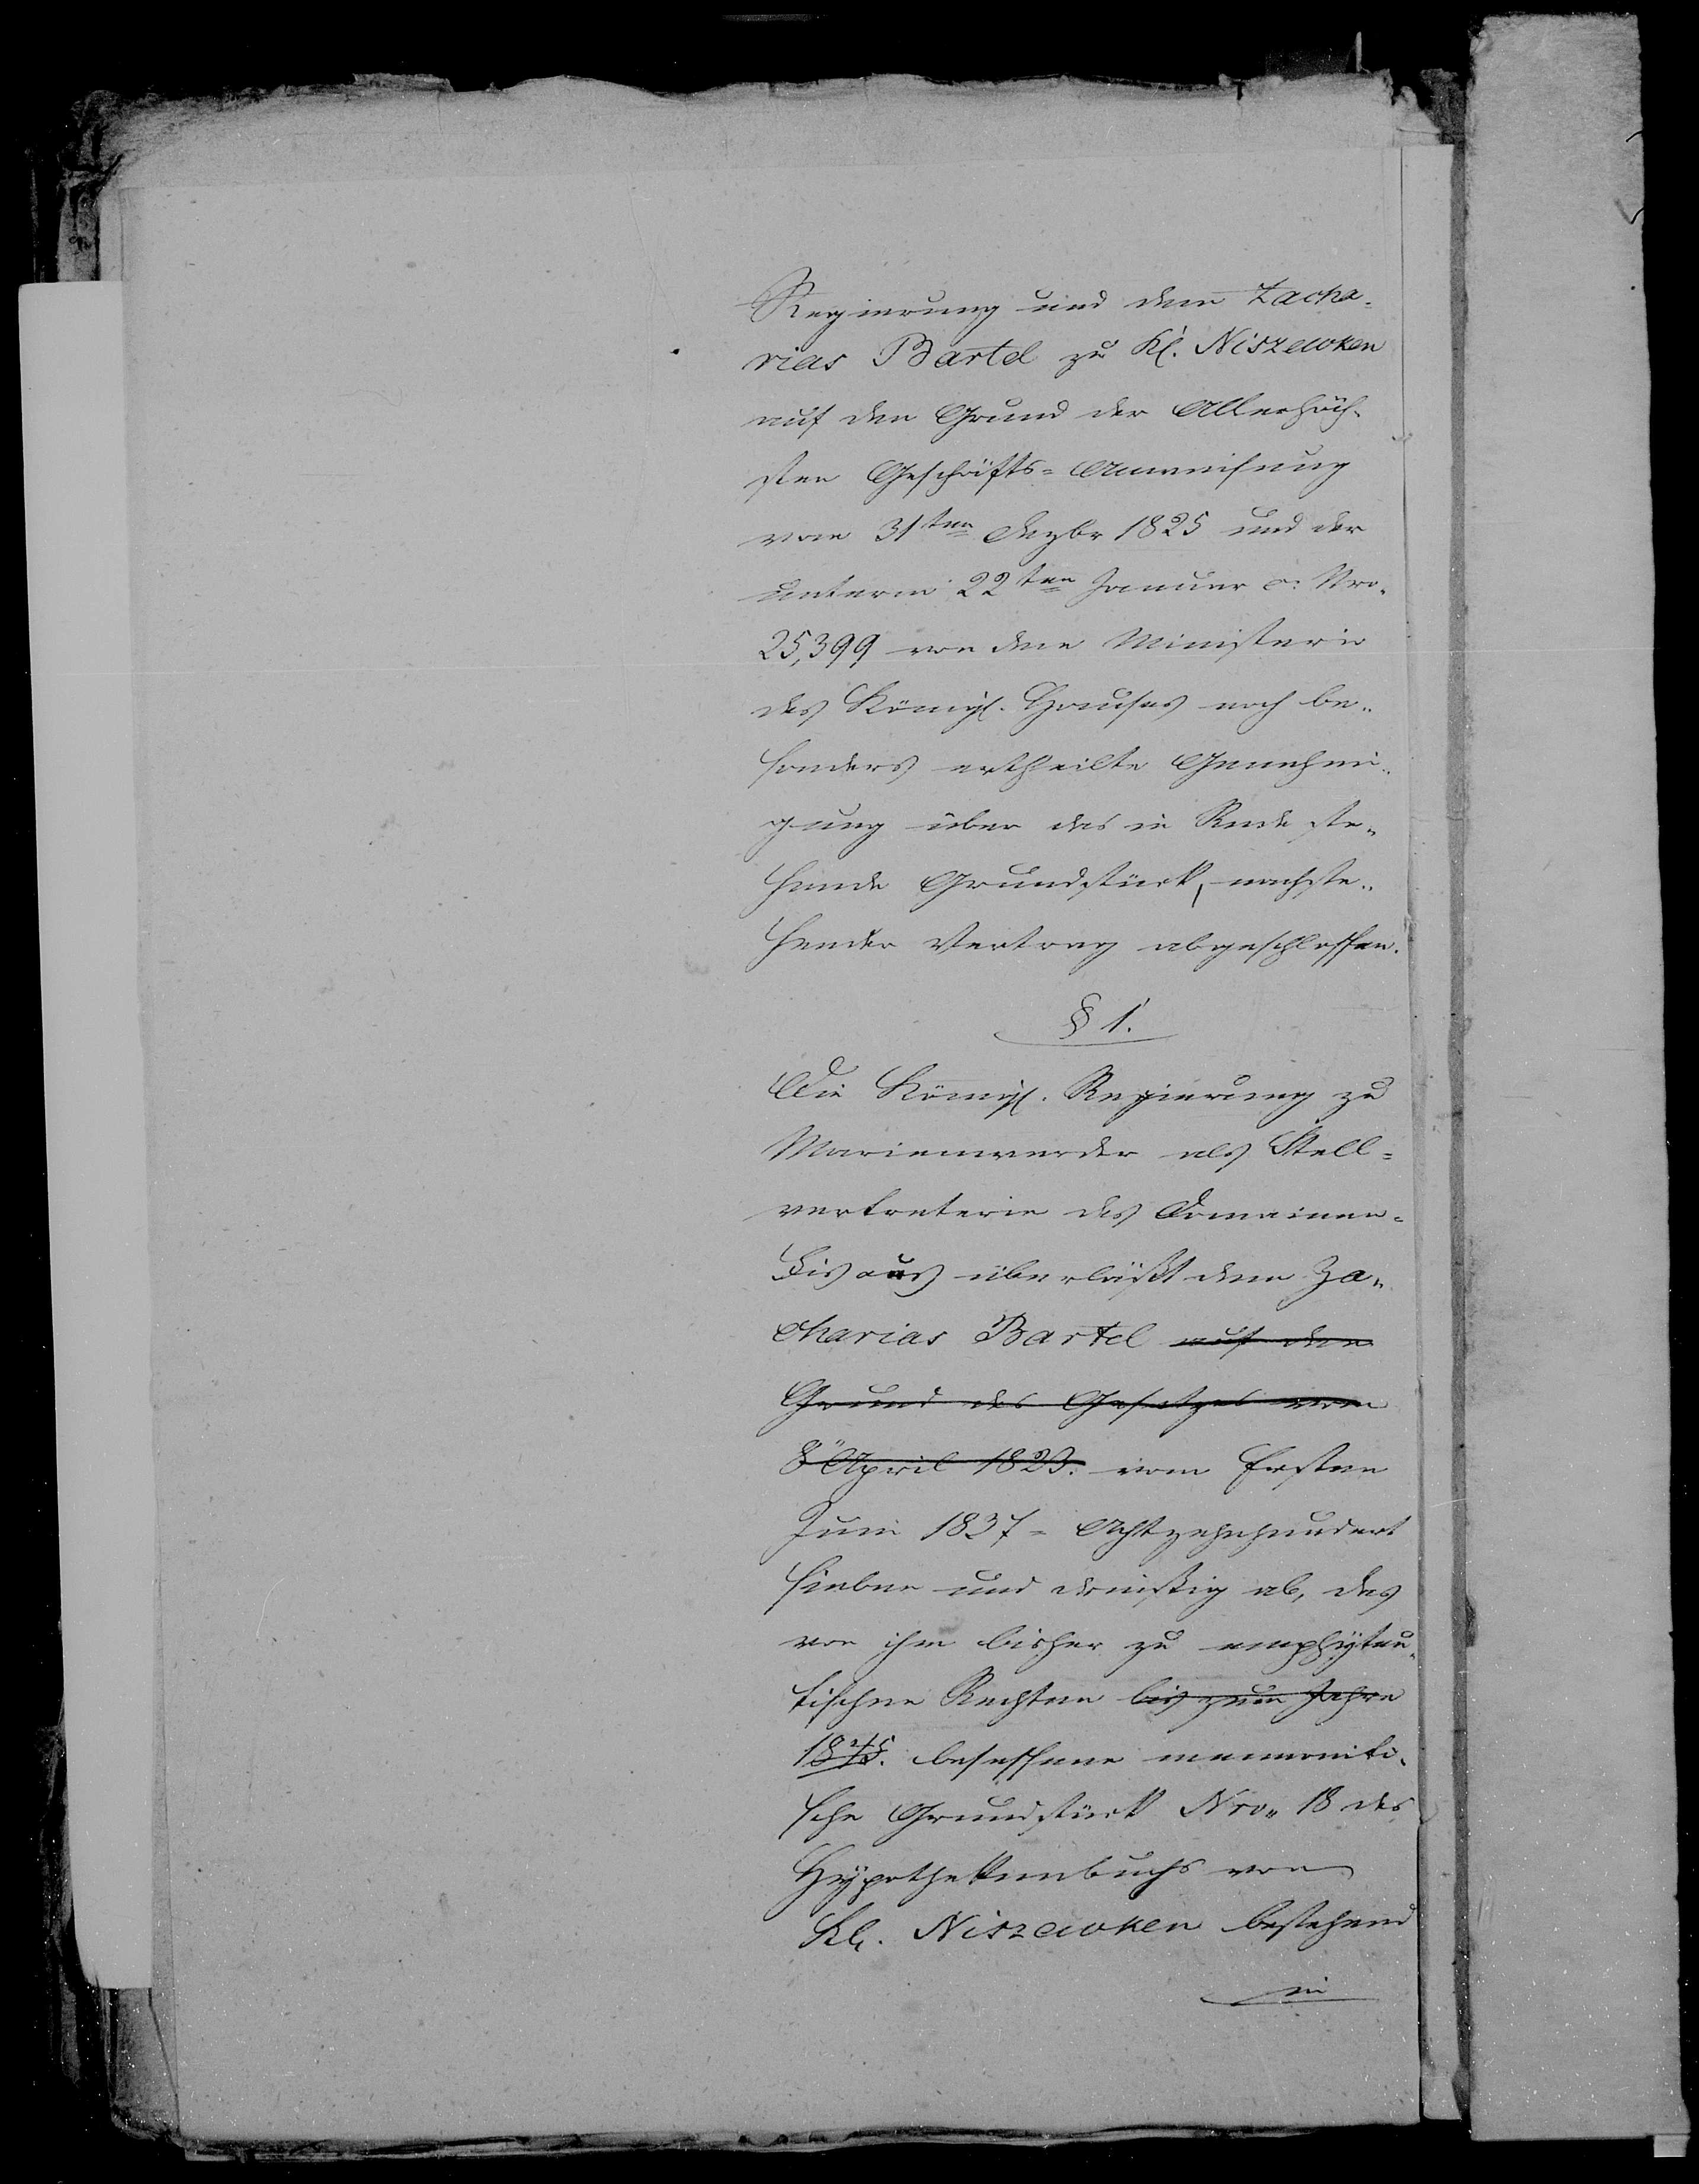 Regierung und dem Zacha-
rias Bartel zu Kl. Niszewken
auf den Grund der Allerhöch-
sten Geschäfts-Anweisung
vom 31ten Dezbr 1825 und der
unterm 22ten Januar c: Nro.
25,399 von dem Ministerio
des Königl. Hauses noch be-
sonders ertheilte Genehmi-
gung über das in Rede ste-
hende Grundstück, nachste-
hender Vertrag abgeschlossen.
§ 1.
Die Königl. Regierung zu
Marienwerder als Stell-
vertreterin des Domainen-
Fiscus überläßt dem Za-
charias Bartel auf den
Grund des Gesetzes vom
8" April 1823. vom Ersten
Juni 1837 = Achtzehnhundert
sieben und dreißig ab, das
von ihm bisher zu emphyteu-
tischen Rechten bis zum Jahre
1845. besessene mennoniti-
sche Grundstück Nro. 18 des
Hypothekenbuchs von
Kl. Niszewken bestehend
in